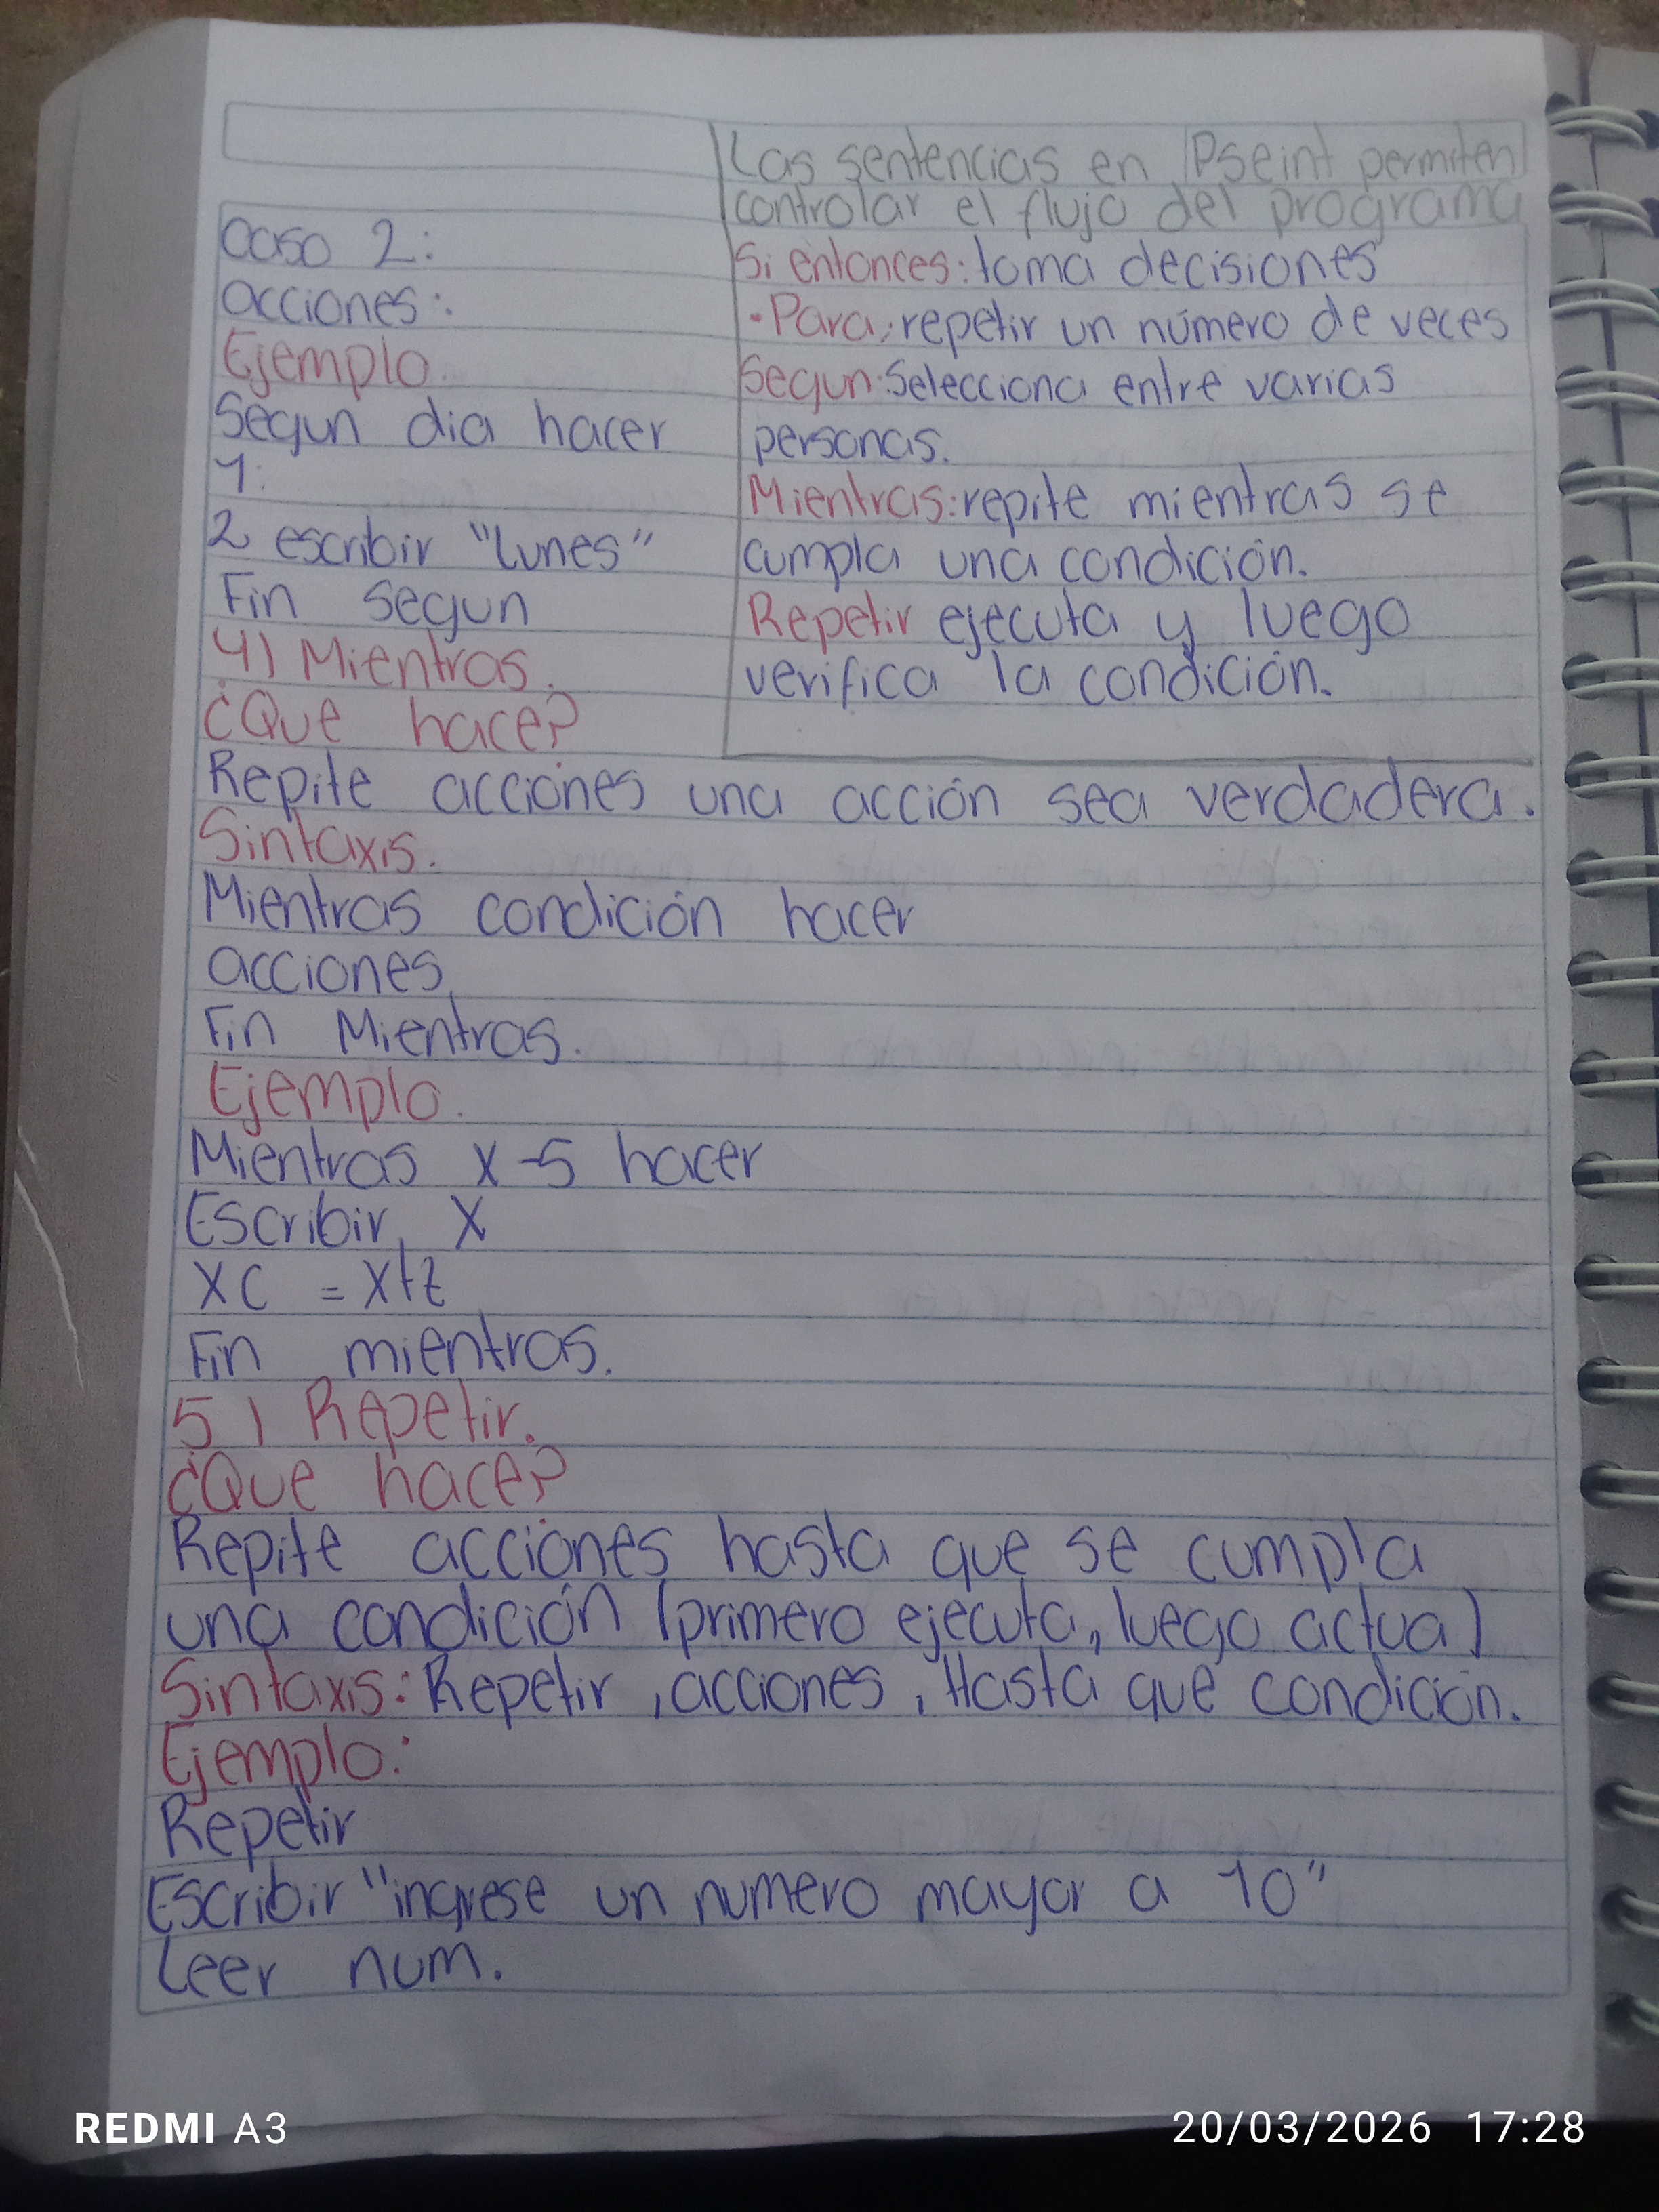 Caso 2:
acciones:
Ejemplo.
Segun dia hacer
1:
2 escribir "Lunes"
Fin segun
4) Mientras.
¿Que hace?
Las sentencias en Pseint permiten
controlar el flujo del programa
Si entonces: toma decisiones
• Para: repetir un número de veces
Segun: Selecciona entre varias
personas.
Mientras: repite mientras se
cumpla una condición.
Repetir ejecuta y luego
verifica la condición.
Repite acciones una acción sea verdadera.
Sintaxis.
Mientras condición hacer
acciones
Fin Mientras.
Ejemplo.
Mientras x-5 hacer
Escribir x
xc = x+z
Fin mientras.
5) Repetir.
¿Que hace?
Repite acciones hasta que se cumpla
una condición (primero ejecuta, luego actua)
Sintaxis: Repetir, acciones, Hasta que condición.
Ejemplo:
Repetir
Escribir "ingrese un numero mayor a 10"
Leer num.
REDMI A3
20/03/2026 17:28